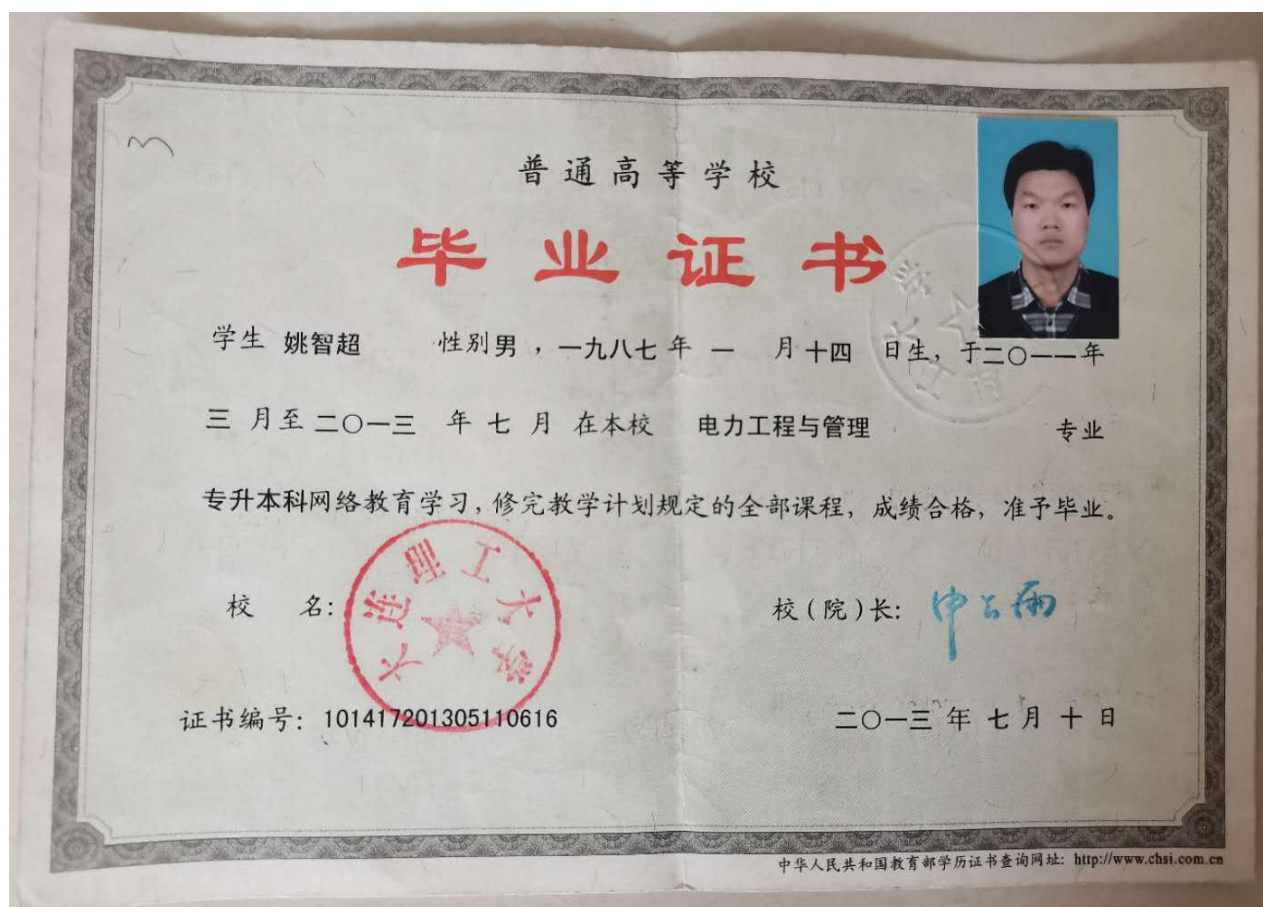 普通高等学校
毕业证书
学生 姚智超 性别男，一九八七年 一 月十四 日生，于二〇一一年
三 月至二〇一三 年 七 月 在本校 电力工程与管理 专业
专升本科网络教育学习，修完教学计划规定的全部课程，成绩合格，准予毕业。
校 名：
大连理工大学
校(院)长：
证书编号：101417201305110616
二〇一三 年 七 月 十 日
中华人民共和国教育部学历证书查询网址：http://www.chsi.com.cn